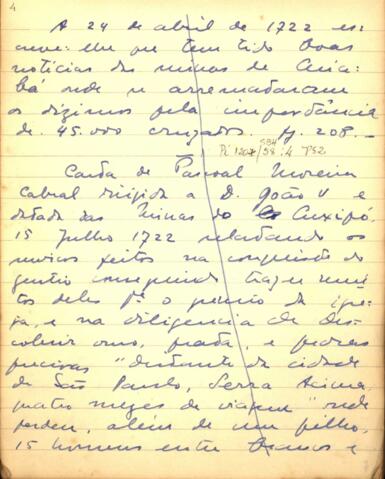 4
A 24 de abril de 1722 es-
creve-lhe que tem tido boas
notícias das minas de Cuia-
bá onde se arremataram
os dizimos pela importância
de 45.000 cruzados. fg. 208.—
Pi 1208/58:4 P52
Carta de Pascoal Moreira
Cabral dirigida a D. João V e
datada das Minas do Cuxipó
15 Julho 1722 relatando os
serviços feitos na conquista do
gentio conseguindo trazer mui-
tos deles pª o gremio da igre-
ja, e na diligencia de des-
cobrir ouro, prata, e pedras
preciosas "distante da cidade
de São Paulo, Serra Acima
quatro mezes de viagem" onde
perdeu, além de um filho,
15 homens entre brancos e